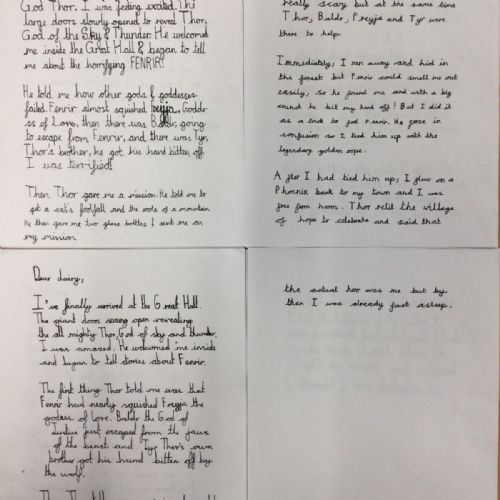 God Thor. I was feeling excited. The
large doors slowly opened to reveal Thor,
God of the Sky & Thunder. He welcomed
me inside the Great Hall & began to tell
me about the horrifying FENRIR!
He told me how other gods & goddesses
failed. Fenrir almost squished Freyja, Godde-
ss of Love, then there was Baldr, going
to escape from Fenrir, and there was Tyr,
Thor's brother, he got his hand bitten off.
I was terrified!
Then Thor gave me a mission. He told me to
get a cat's footfall and the roots of a mountain
He then gave me two glass bottles & sent me on
my mission.
really scary but at the same time
Thor, Baldr, Freyja and Tyr were
there to help.
Immediately, I ran away and hid in
the forest but Fenrir could smell me out
easily, so he found me and with a big
he bit my hand off! But I did it
as a trick to fool Fenrir. He froze in
confusion so I tied him up with the
legendary golden rope.
After I had tied him up, I flew on a
Phoenix back to my town and I was
free from harm. Thor the village
of hope to celebrate and said that
Dear dairy,
I've finally arrived at the Great Hall.
The giant door swung open revealing
the all mighty Thor, God of sky and thunder.
I was amazed. He welcomed me inside
and began to tell stories about Fenrir.
The first thing Thor told me was that
Fenrir had nearly squished Freyja the
godess of love. Baldr the God of
Justice just escaped from the jaws
of the beast and Tyr Thor's own
brother got his hand bitten off by
the wolf.
the actual hero was me but by
then I was already fast asleep.